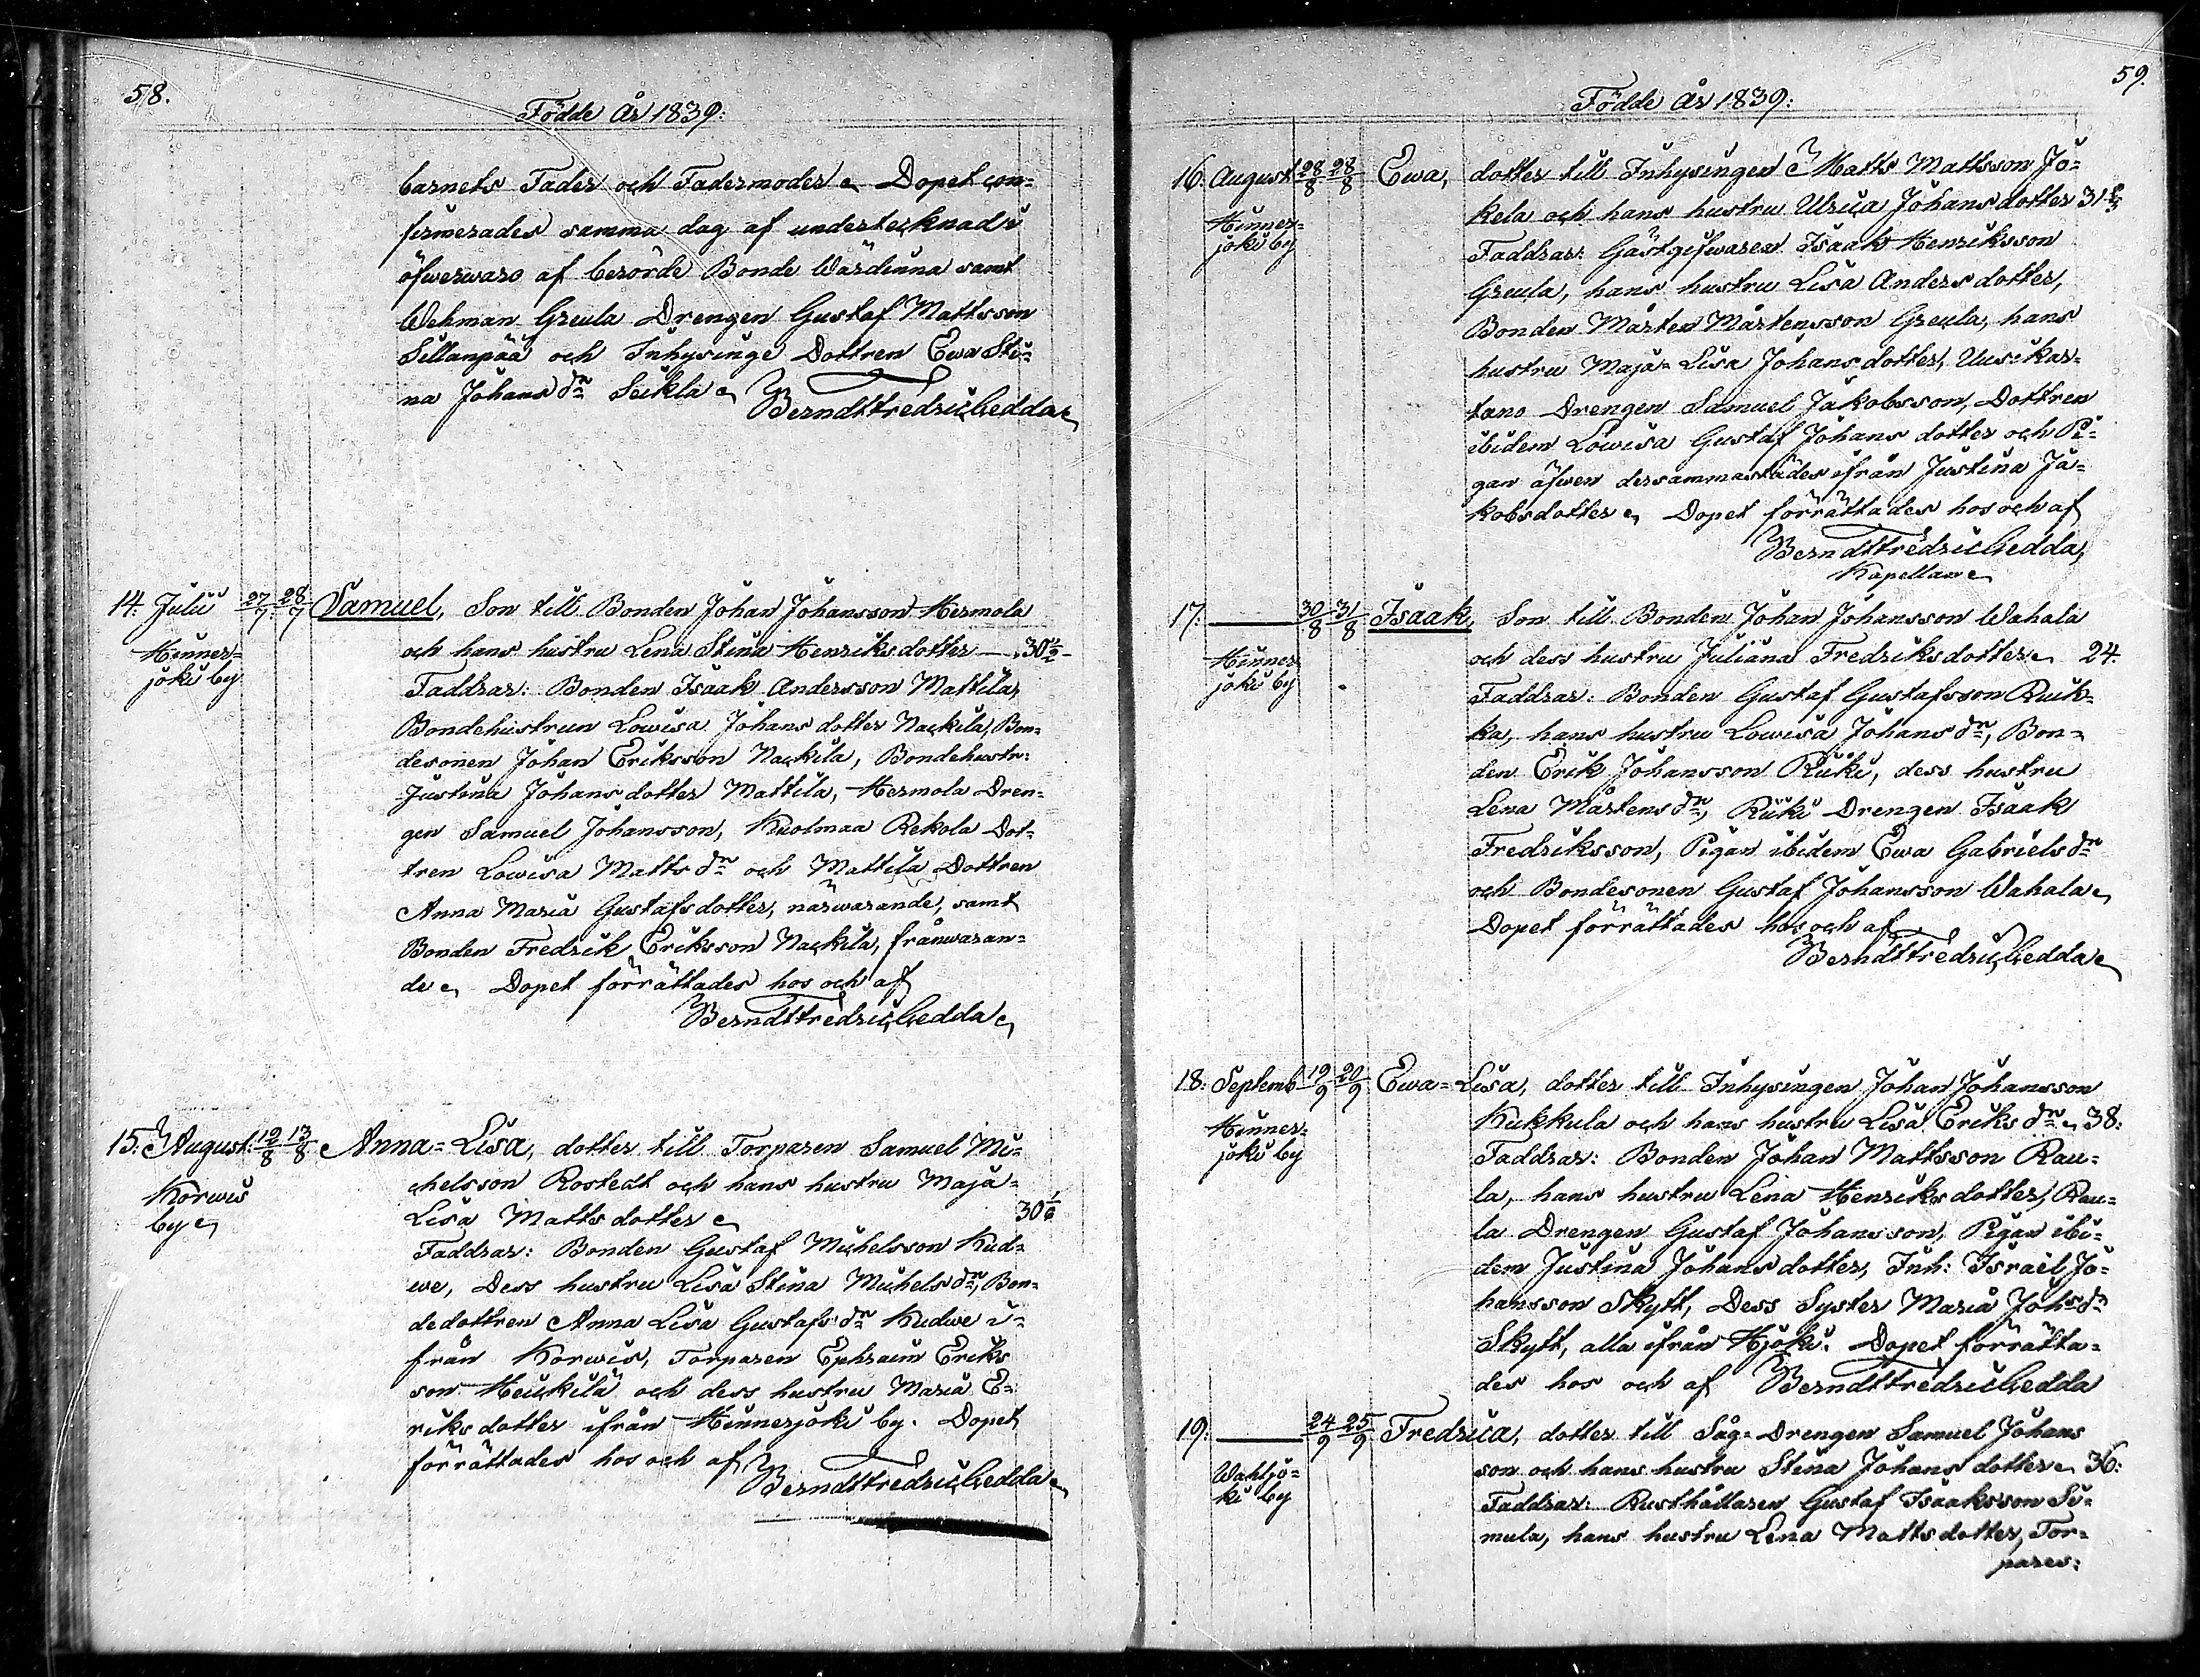 58.
Födde År 1839:
barnets Fader och Fadermoder. Dopet con=
firmerades samma dag af undertecknad i
öfwerwaro af berörde Bonde Wärdinna samt
Wehman Greula Drengen Gustaf Mattsson
Sillanpää och Inhysinge Dottren Ewa Sti=
na Johans dr Seikla. Berndt Fredric Gedda.
14. Julii 27/7. 28/7 Samuel, Son till Bonden Johan Johansson Hermola
Hinner= och hans hustru Lena Stina Henriksdotter — 30½
joki by Faddrar: Bonden Isaak Andersson Mattila,
Bondehustrun Lowisa Johans dotter Nackila, Bon=
desonen Johan Eriksson Nackila, Bondehustr:
Justina Johans dotter Mattila, Hermola Dren=
gen Samuel Johansson, Kuolmaa Rekola Dot=
tren Lowisa Matts dr och Mattila Dottren
Anna Maria Gustafs dotter, närwarande, samt
Bonden Fredrik Eriksson Nackila, frånwaran=
de. Dopet förrättades hos och af
Berndt Fredric Gedda.
15. August: 12/8 13/8 Anna=Lisa, dotter till Torparen Samuel Mi=
Korwis chelsson Rostedt och hans hustru Maja=
by. Lisa Matts dotter. 30 1/6
Faddrar: Bonden Gustaf Michelsson Kud=
we, Dess hustru Lisa Stina Michels dr, Bon=
dedottren Anna Lisa Gustafs dr Kudwe i=
från Korwis, Torparen Ephraim Eriks
son Heickilä och dess hustru Maria E=
riks dotter ifrån Hinnerjoki by. Dopet
förrättades hos och af
Berndt Fredric Gedda.
59.
Födde År 1839:
16. August 28/8 28/8 Ewa, dotter till Inhysingen Matts Mattsson Jo=
Hinner= kela och hans hustru Ulrica Johans dotter 31
joki by Faddrar: Gästgifwaren Isaak Henriksson
Greula, hans hustru Lisa Anders dotter,
Bonden Mårten Mårtensson Greula, hans
hustru Maja=Lisa Johans dotter, Uusikar=
tano Drengen Samuel Jakobsson, Dottren
ibidem Lowisa Gustaf Johans dotter och Pi=
gan äfwen dersammastädes ifrån Justina Ja=
kobsdotter. Dopet förrättades hos och af
Berndt Fredric Gedda,
Kapellan.
17. — 30/8 31/8 Isaak, Son till Bonden Johan Johansson Wahala
Hinner och dess hustru Juliana Fredriksdotter. 24.
joki by Faddrar: Bonden Gustaf Gustafsson Ruik=
ka, hans hustru Lowisa Johans dr, Bon=
den Erik Johansson Riiki, dess hustru
Lena Mårtens dr, Riiki Drengen Isaak
Fredriksson, Pigan ibidem Ewa Gabriels dr
och Bondesonen Gustaf Johansson Wahala.
Dopet förrättades hos och af
Berndt Fredric Gedda.
18. Septemb 19/9 20/9 Ewa=Lisa, dotter till Inhysingen Johan Johansson
Hinner= Kukkula och hans hustru Lisa Eriks dr. 38.
joki by Faddrar: Bonden Johan Mattsson Rau=
la, hans hustru Lena Henriks dotter, Rau=
la Drengen Gustaf Johansson, Pigan ibi=
dem Justina Johans dotter, Inh: Israel Jo=
hansson Skytt, Dess Syster Maria Johs dr
Skytt, alla ifrån Hjoki. Dopet förrätta=
des hos och af Berndt Fredric Gedda
19. — 24/9 25/9 Fredrica, dotter till Såg=Drengen Samuel Johans
Wahljo= son och hans hustru Stina Johans dotter. 36.
ki by Faddrar: Rusthållaren Gustaf Isaaksson Si=
mula, hans hustru Lena Matts dotter, Tor=
paren: